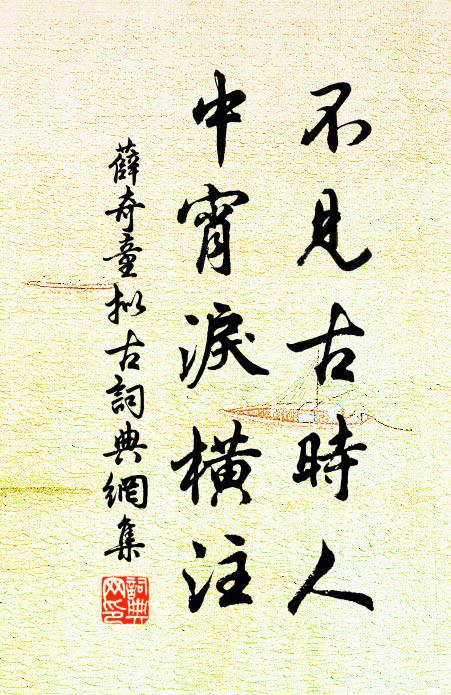 不見古時人
中宵淚橫注
薛奇童擬古詞典網集
詞典網印